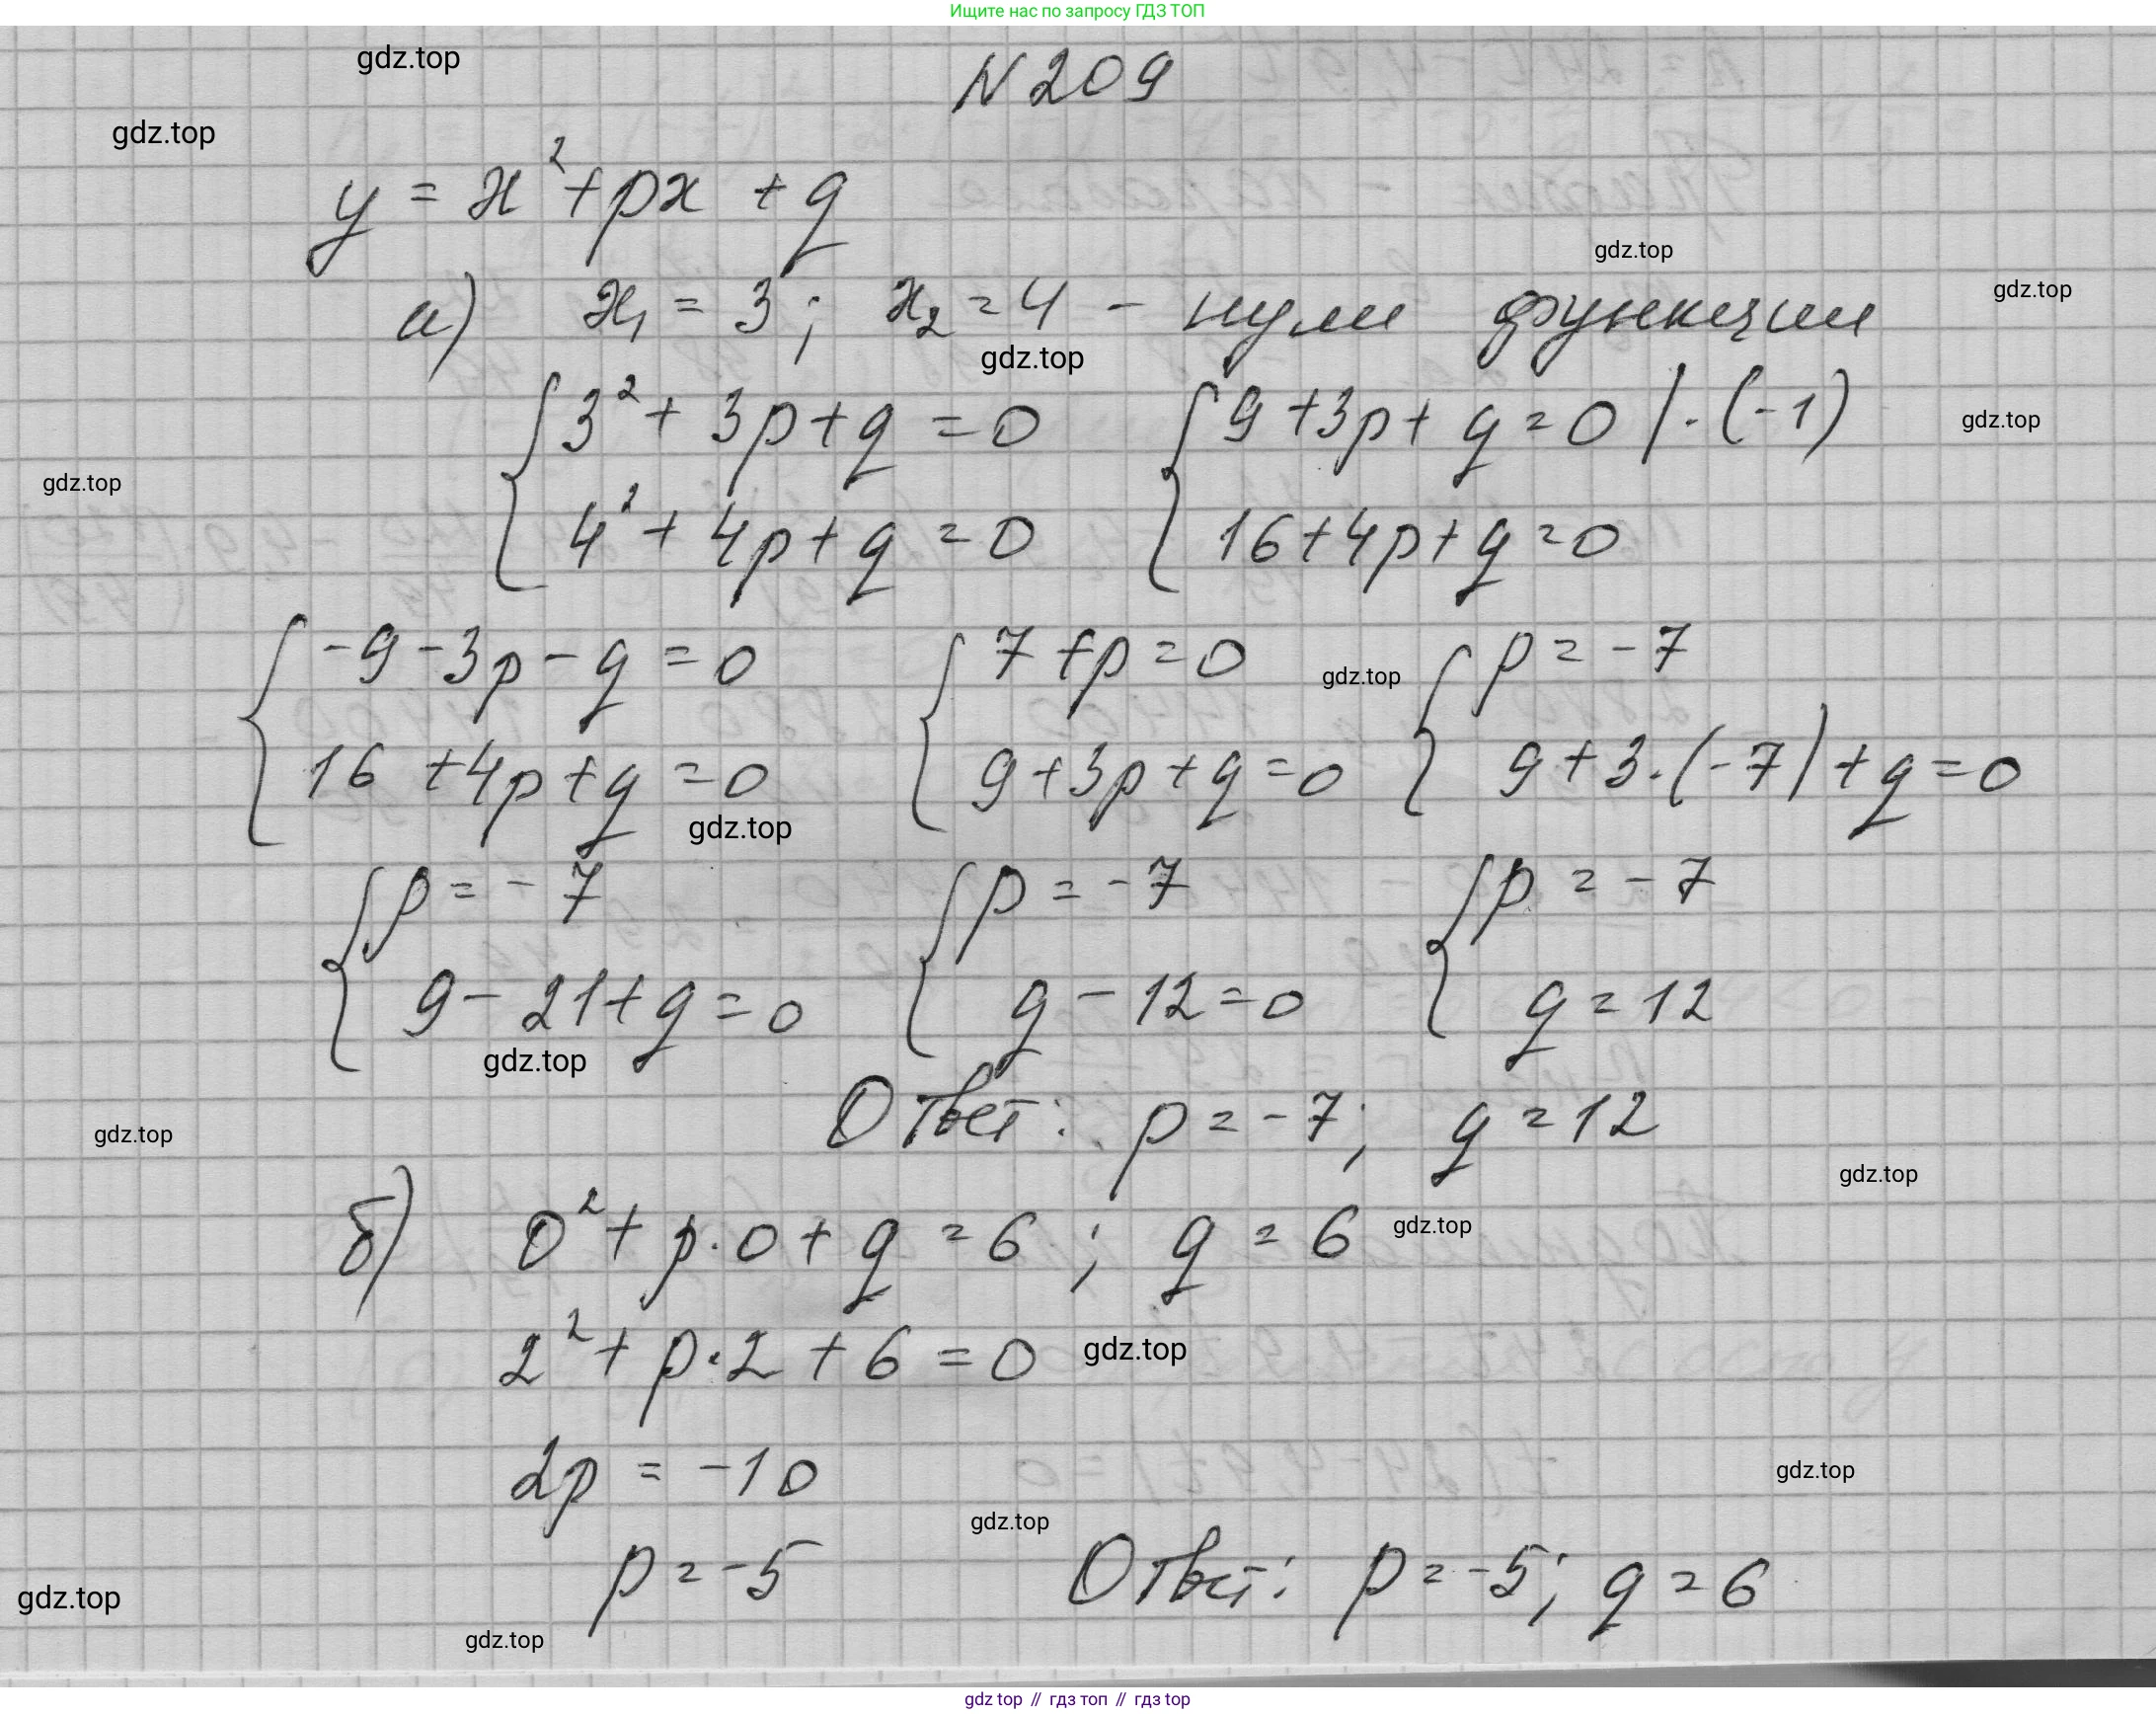 Ищите нас по запросу ГДЗ ТОП
gdz.top
N 209
gdz.top
y = x² + px + q
gdz.top
gdz.top
а) x₁ = 3; x₂ = 4 – нули функции
gdz.top
{ 3² + 3p + q = 0 { 9 + 3p + q = 0 | · (-1)
gdz.top
gdz.top
4² + 4p + q = 0 16 + 4p + q = 0
{ -9 - 3p - q = 0 { 7 + p = 0 gdz.top { p = -7
16 + 4p + q = 0 9 + 3p + q = 0 9 + 3 · (-7) + q = 0
gdz.top
{ p = -7 { p = -7 { p = -7
9 - 21 + q = 0 q - 12 = 0 q = 12
gdz.top
Ответ: p = -7; q = 12
gdz.top
gdz.top
б) 0² + p · 0 + q = 6; q = 6 gdz.top
2² + p · 2 + 6 = 0 gdz.top
2p = -10
gdz.top
gdz.top
p = -5 Ответ: p = -5; q = 6
gdz.top
gdz.top
gdz top // гдз топ // гдз top